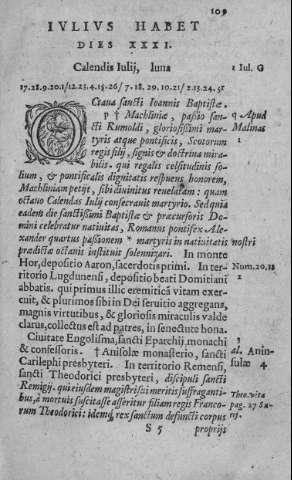 109
IVLIVS HABET
DIES XXXI.
Calendis Iulij, luna
1 Iul. G
17.28.9.20.1/12.23.4.15-26/7.18.29.10.21/2.13.24.5f
OCtaua sancti Ioannis Baptistæ.
p † Machliniæ, passio san-
q Apud
cti Rumoldi, gloriosissimi mar-
Malinas
tyris atque pontificis, Scotorum
regis filij, signis & doctrina mira-
bilis. qui regalis celsitudinis so-
lium, & pontificalis dignitatis respuens honorem,
Machliniam petijt, sibi diuinitus reuelatam: quam
octauo Calendas Iulij consecrauit martyrio. Sed quia
eadem die sanctissimi Baptistæ & præcursoris Do-
mini celebratur natiuitas, Romanus pontifex Ale-
xander quartus passionem * martyris in natiuitatis
nostri
prædictæ octauis instituit solennizari. In monte
Hor, depositio Aaron, sacerdotis primi. In ter-
Num. 20.
ritorio Lugdunensi, depositio beati Domitiani
2
abbatis. qui primus illic eremiticā vitam exer-
cuit, & plurimos sibi in Dei seruitio aggregans,
magnis virtutibus, & gloriosis miraculis valde
clarus, collectus est ad patres, in senectute bona.
Ciuitate Engolisma, sancti Eparchij, monachi
3
& confessoris. † Anisolæ monasterio, sancti
al. Anin-
Carilephi presbyteri. In territorio Remensi,
sulæ 4
sancti Theodorici presbyteri, discipuli sancti
Remigij. qui eiusdem magistri sui meritis suffraganti-
Theo. vita
bus, à mortuis suscitasse asseritur filiam regis Franco-
pag. 27 Su-
rum Theodorici: idemq́; rex sanctum defuncti corpus
rij.
S 5
proprijs